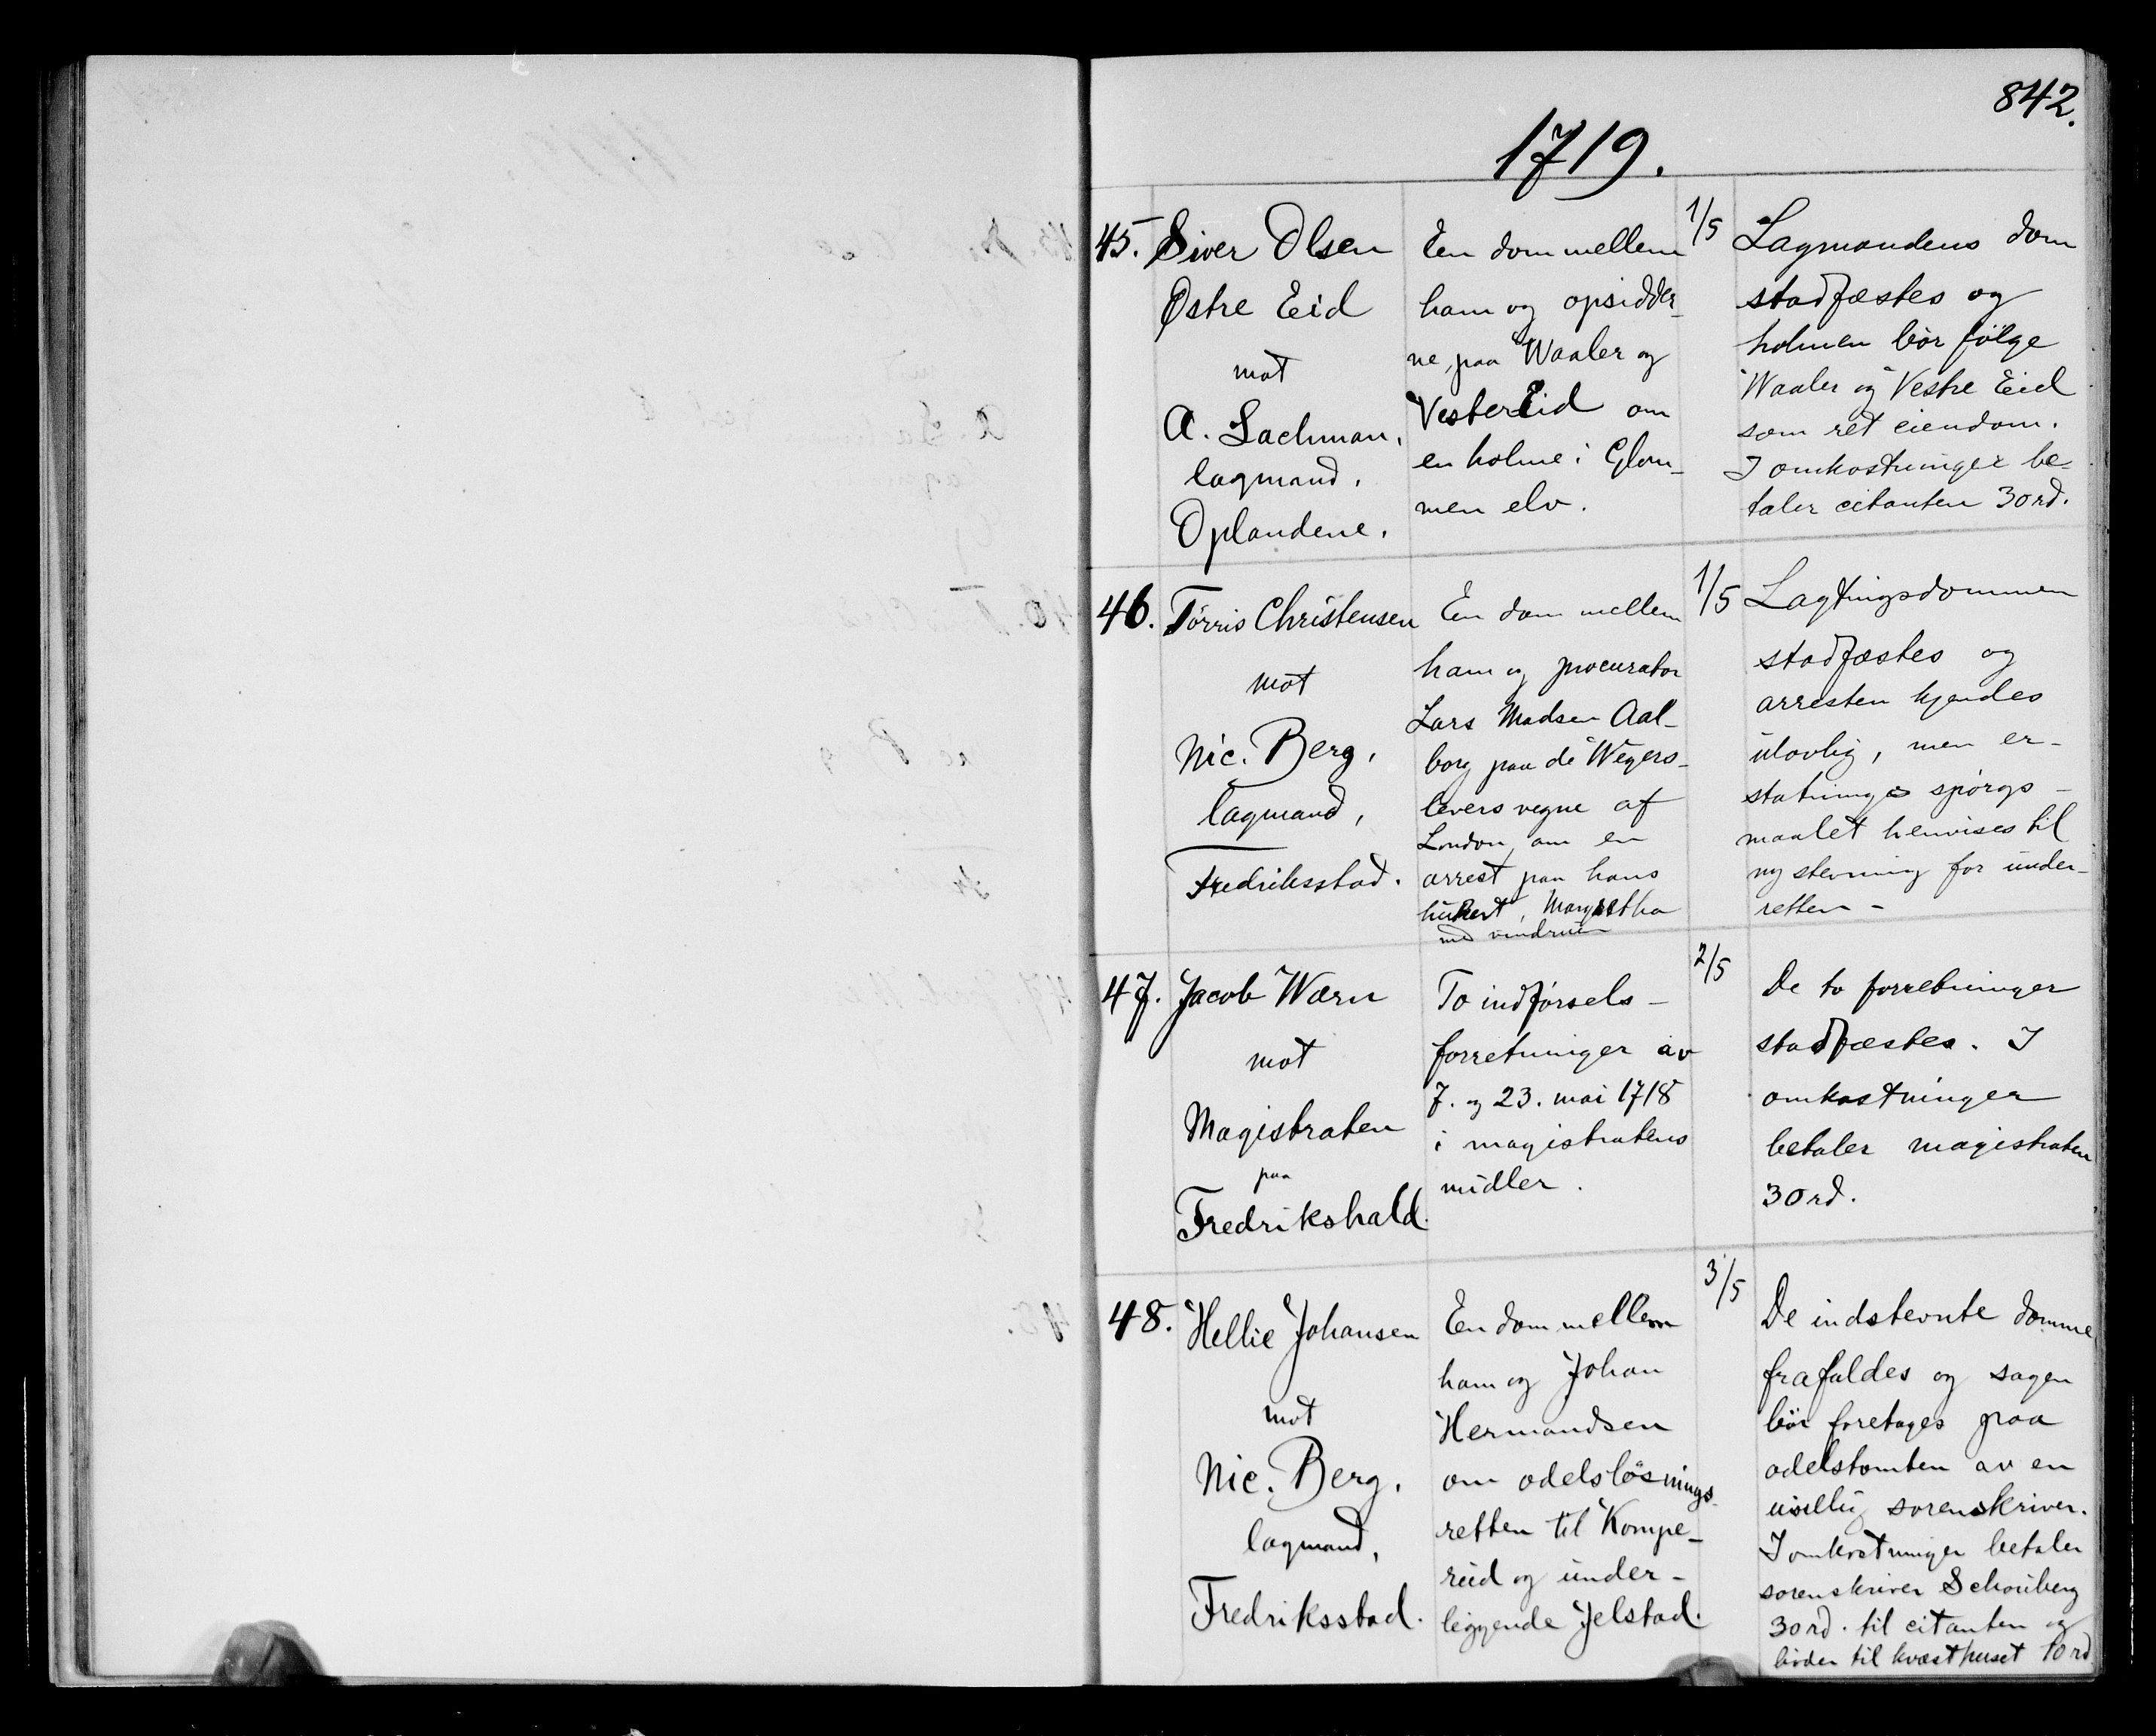 842.
1719.
45. Siver Olsen
Østre Eid
mot
A. Lachman,
lagmand.
Oplandene.
En dom mellem
ham og opsidder-
ne paa Waaler og
VesterEid om
en holme i Glom-
men elv.
1/5
Lagmandens dom
stadfæstes og
holmen bör fölge
Waaler og Vestre Eid
som ret eiendom.
I omkostninger be-
taler citanten 30 rd.
46. Törris Christensen
mot
Nic. Berg,
lagmand,
Fredriksstad.
En dom mellem
ham og procurator
Lars Madsen Aal-
borg paa de Wegers-
levers vegne af
London, om en
arrest paa hans
hukert, Margretha
med
1/5
Lagtingsdommen
stadfæstes og
arresten kjendes
ulovlig, men er-
statnings spörgs-
maalet henvises til
ny stevning for under-
retten -
47. Jacob Wærn
mot
Magistraten
paa
Fredrikshald.
To indförsels-
forretninger av
7. og 23. mai 1718
i magistratens
midler.
2/5
De to forretninger
stadfæstes. I
omkostninger
betaler magistraten
30 rd.
48. Hellie Johansen
mot
Nic. Berg,
lagmand,
Fredriksstad.
En dom mellem
ham og Johan
Hermandsen
om odelslösnings-
retten til Kompe-
rud og under-
liggende Jelstad.
3/5
De indstevnte domme
frafaldes og sagen
bör foretages paa
odelstomten av en
uvillig sorenskriver.
I omkostninger betaler
sorenskriver Schouberg
30 rd. til citanten og
böder til kvæsthuset 10 rd